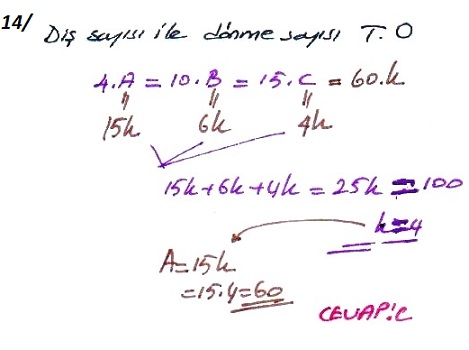 14/ Diş sayısı ile dönme sayısı T.O
4.A = 10.B = 15.C = 60.k
15k 6k 4k
15k+6k+4k = 25k = 100
k=4
A=15k
=15.4=60
CEVAP:C